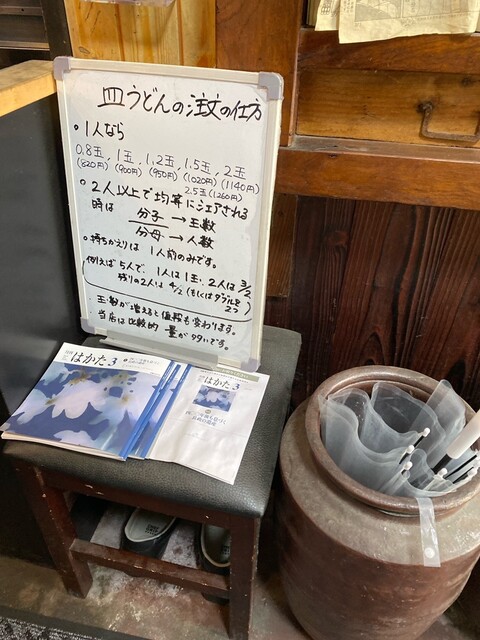 皿うどんの注文の仕方
・1人なら
0.8玉、1玉、1.2玉、1.5玉、2玉
(820円) (900円) (950円) (1020円) (1140円)
2.5玉(1260円)
・2人以上で均等にシェアされる
時は 分子→玉数
分母→人数
・持ちかえりは1人前のみです。
例えば5人で、1人は1玉、2人は3/2
残りの2人は4/2(もしくはダブルを2つ)
玉数が増えると値段も変わります。
当店は比較的量が多いです。
はかた 3
はかた 3